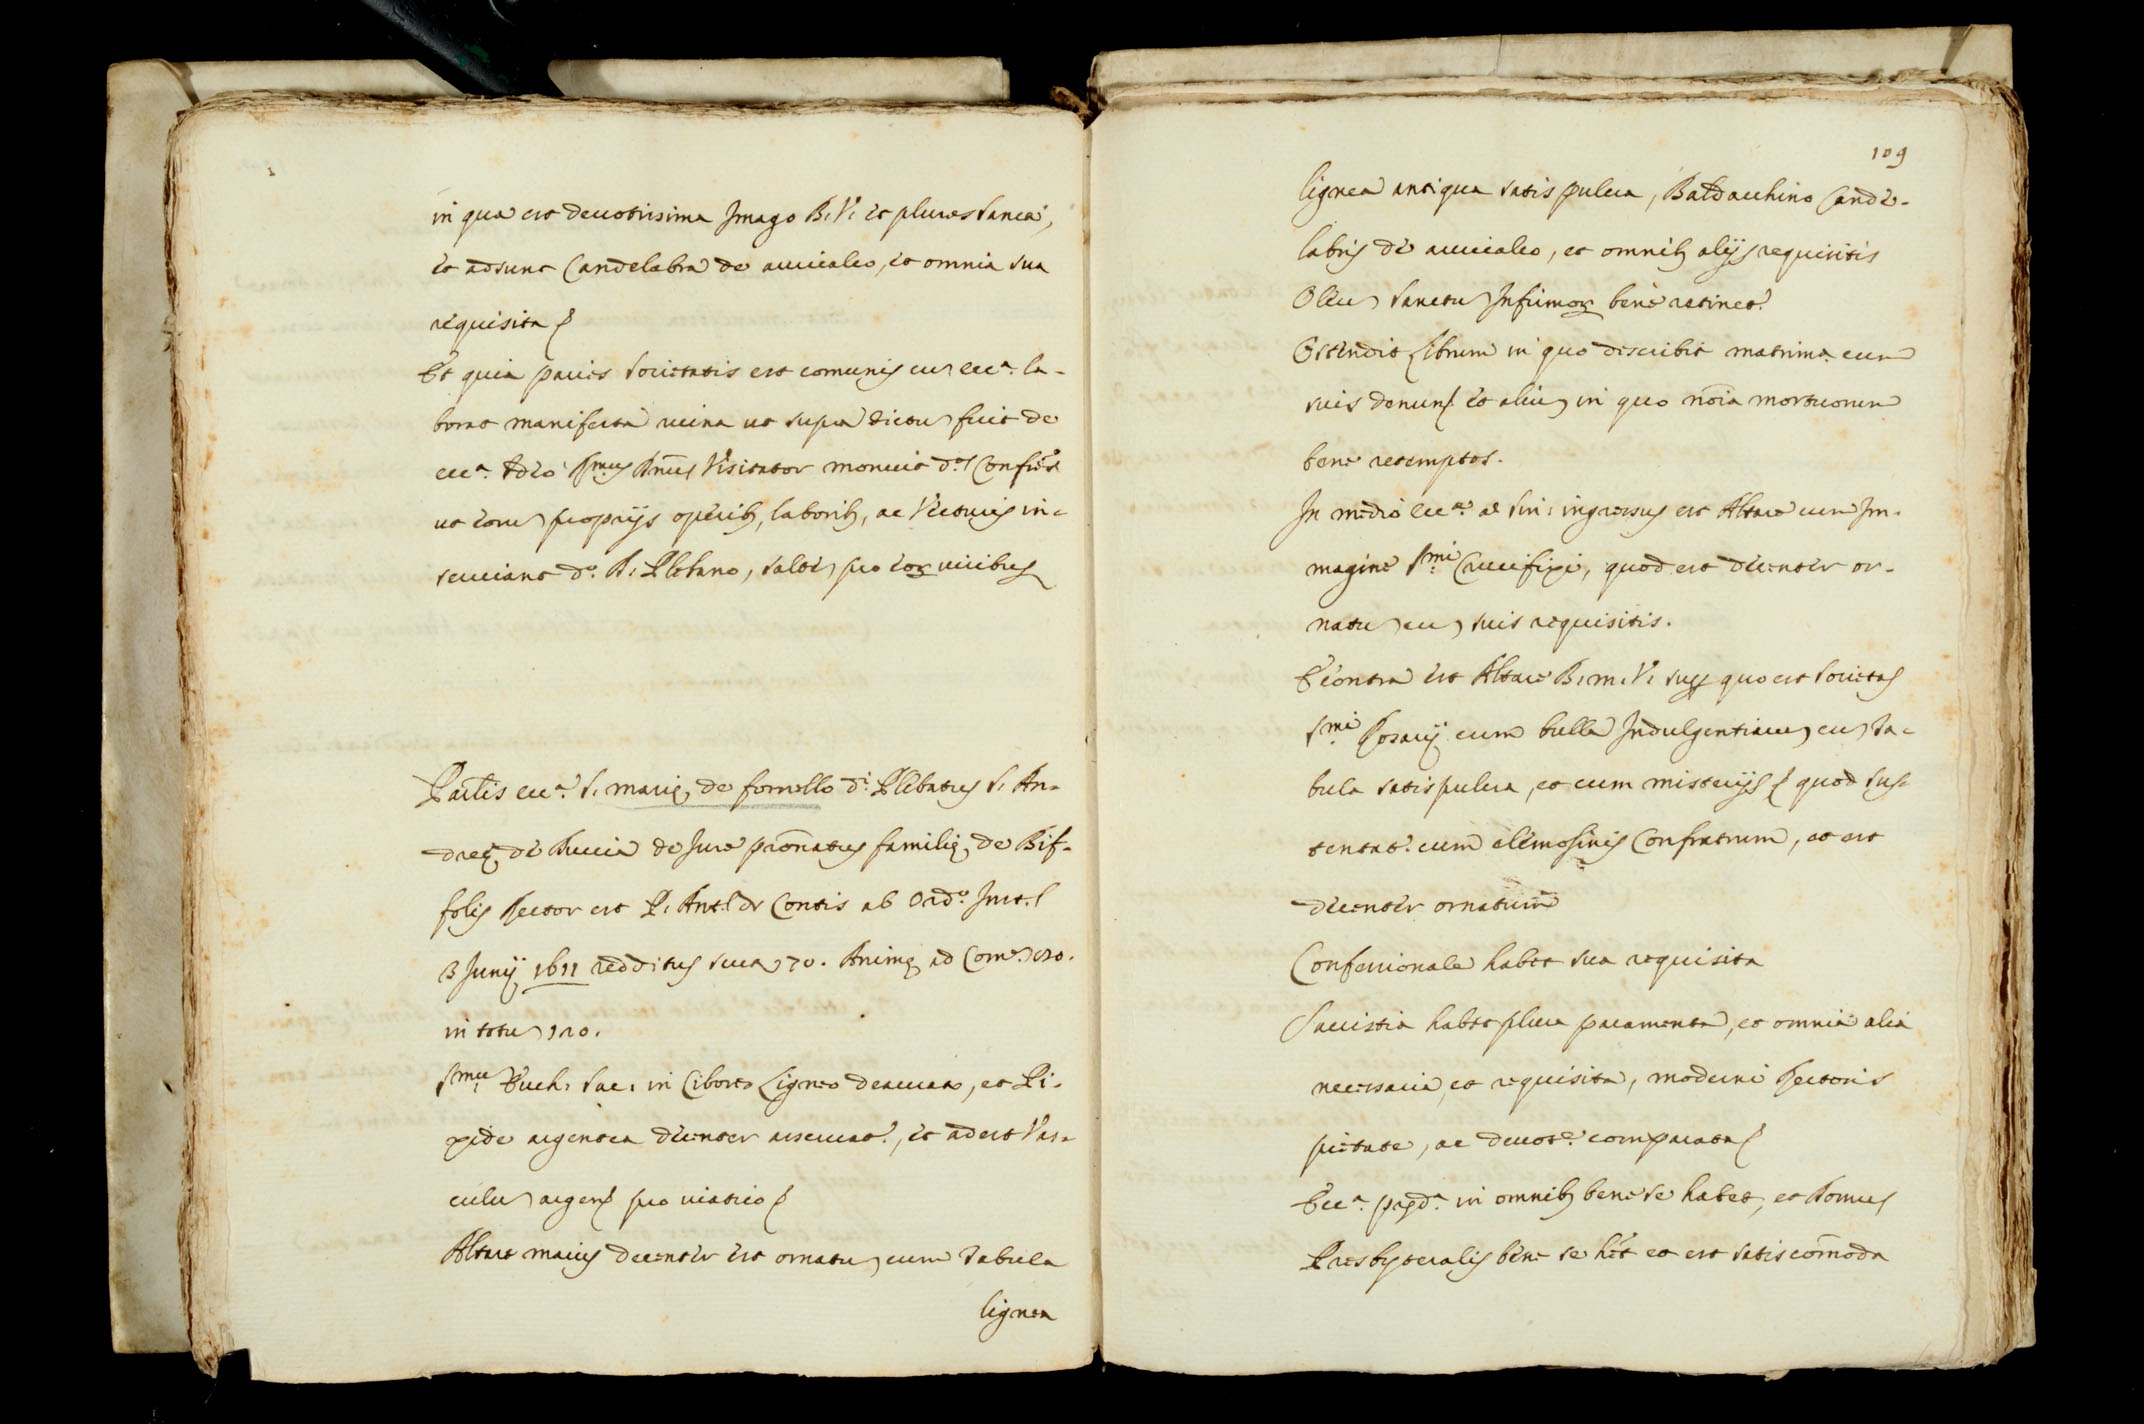 in qua est deuotissima Imago B: V: et plures Sancti,
et adsunt Candelabra de auricalco, et omnia sua
requisita
Et quia paries Societatis est comunis cu ecc.ª la-
borat manifesta ruina ut supra dictu fuit de
ecc.ª Ideo Rmus Dnus Visitator monuit d.os Confres
ut eoru proprijs operib, laborib, ac Vecturis in-
seruiant d.º R: Plebano, saltē pro eor uiribus
Parlis ecc.ª S. Mariæ de fornello d.i Plebatus S. An-
dreæ de Duccia de Jure pronatus familiæ de Bif-
folis Rector est P. Ant.l de Contis ab Ord.º Inst.
3 Junij 1611 redditus scuta 70. Animæ ad Com.
in totu 120.
Smu Euch: Sac: in Ciborio Ligneo deaurato, et Pi-
xide argentea decenter asseruat., et adest Vas-
culu argen pro uiatico
Altare maius decenter est ornatu cum tabula
lignea
109
lignea antiqua satis pulcra, Baldacchino Cande-
labris de auricalco, et omnib alijs requisitis
Oleu Sanctu Infirmor bene retinet.
Ostendit Librum in quo describit matrima. cum
suis denun. et aliu in quo noīa mortuorum
bene retemptos.
In medio ecc.æ a sin: ingressus est Altare cum Im-
magine Smi Crucifixi, quod est decenter or-
natu cu suis requisitis.
E contra est Altare B. M. V. sup quo est Societas
Smi Rosarij cum bulla Indulgentiaru cu ta-
bula satis pulcra, et cum misterijs quod sus-
tentat. cum elemosinis Confratrum, et est
decenter ornatum
Confessionale habet sua requisita
Sacristia habet plura paramenta, et omnia alia
necessaria, et requisita, moderni Rectoris
pietate, ac deuot.e comparata
Ecc.ª præd.ª in omnib bene se habet, et Domus
Presbyteralis bene se hēt et est satis comoda